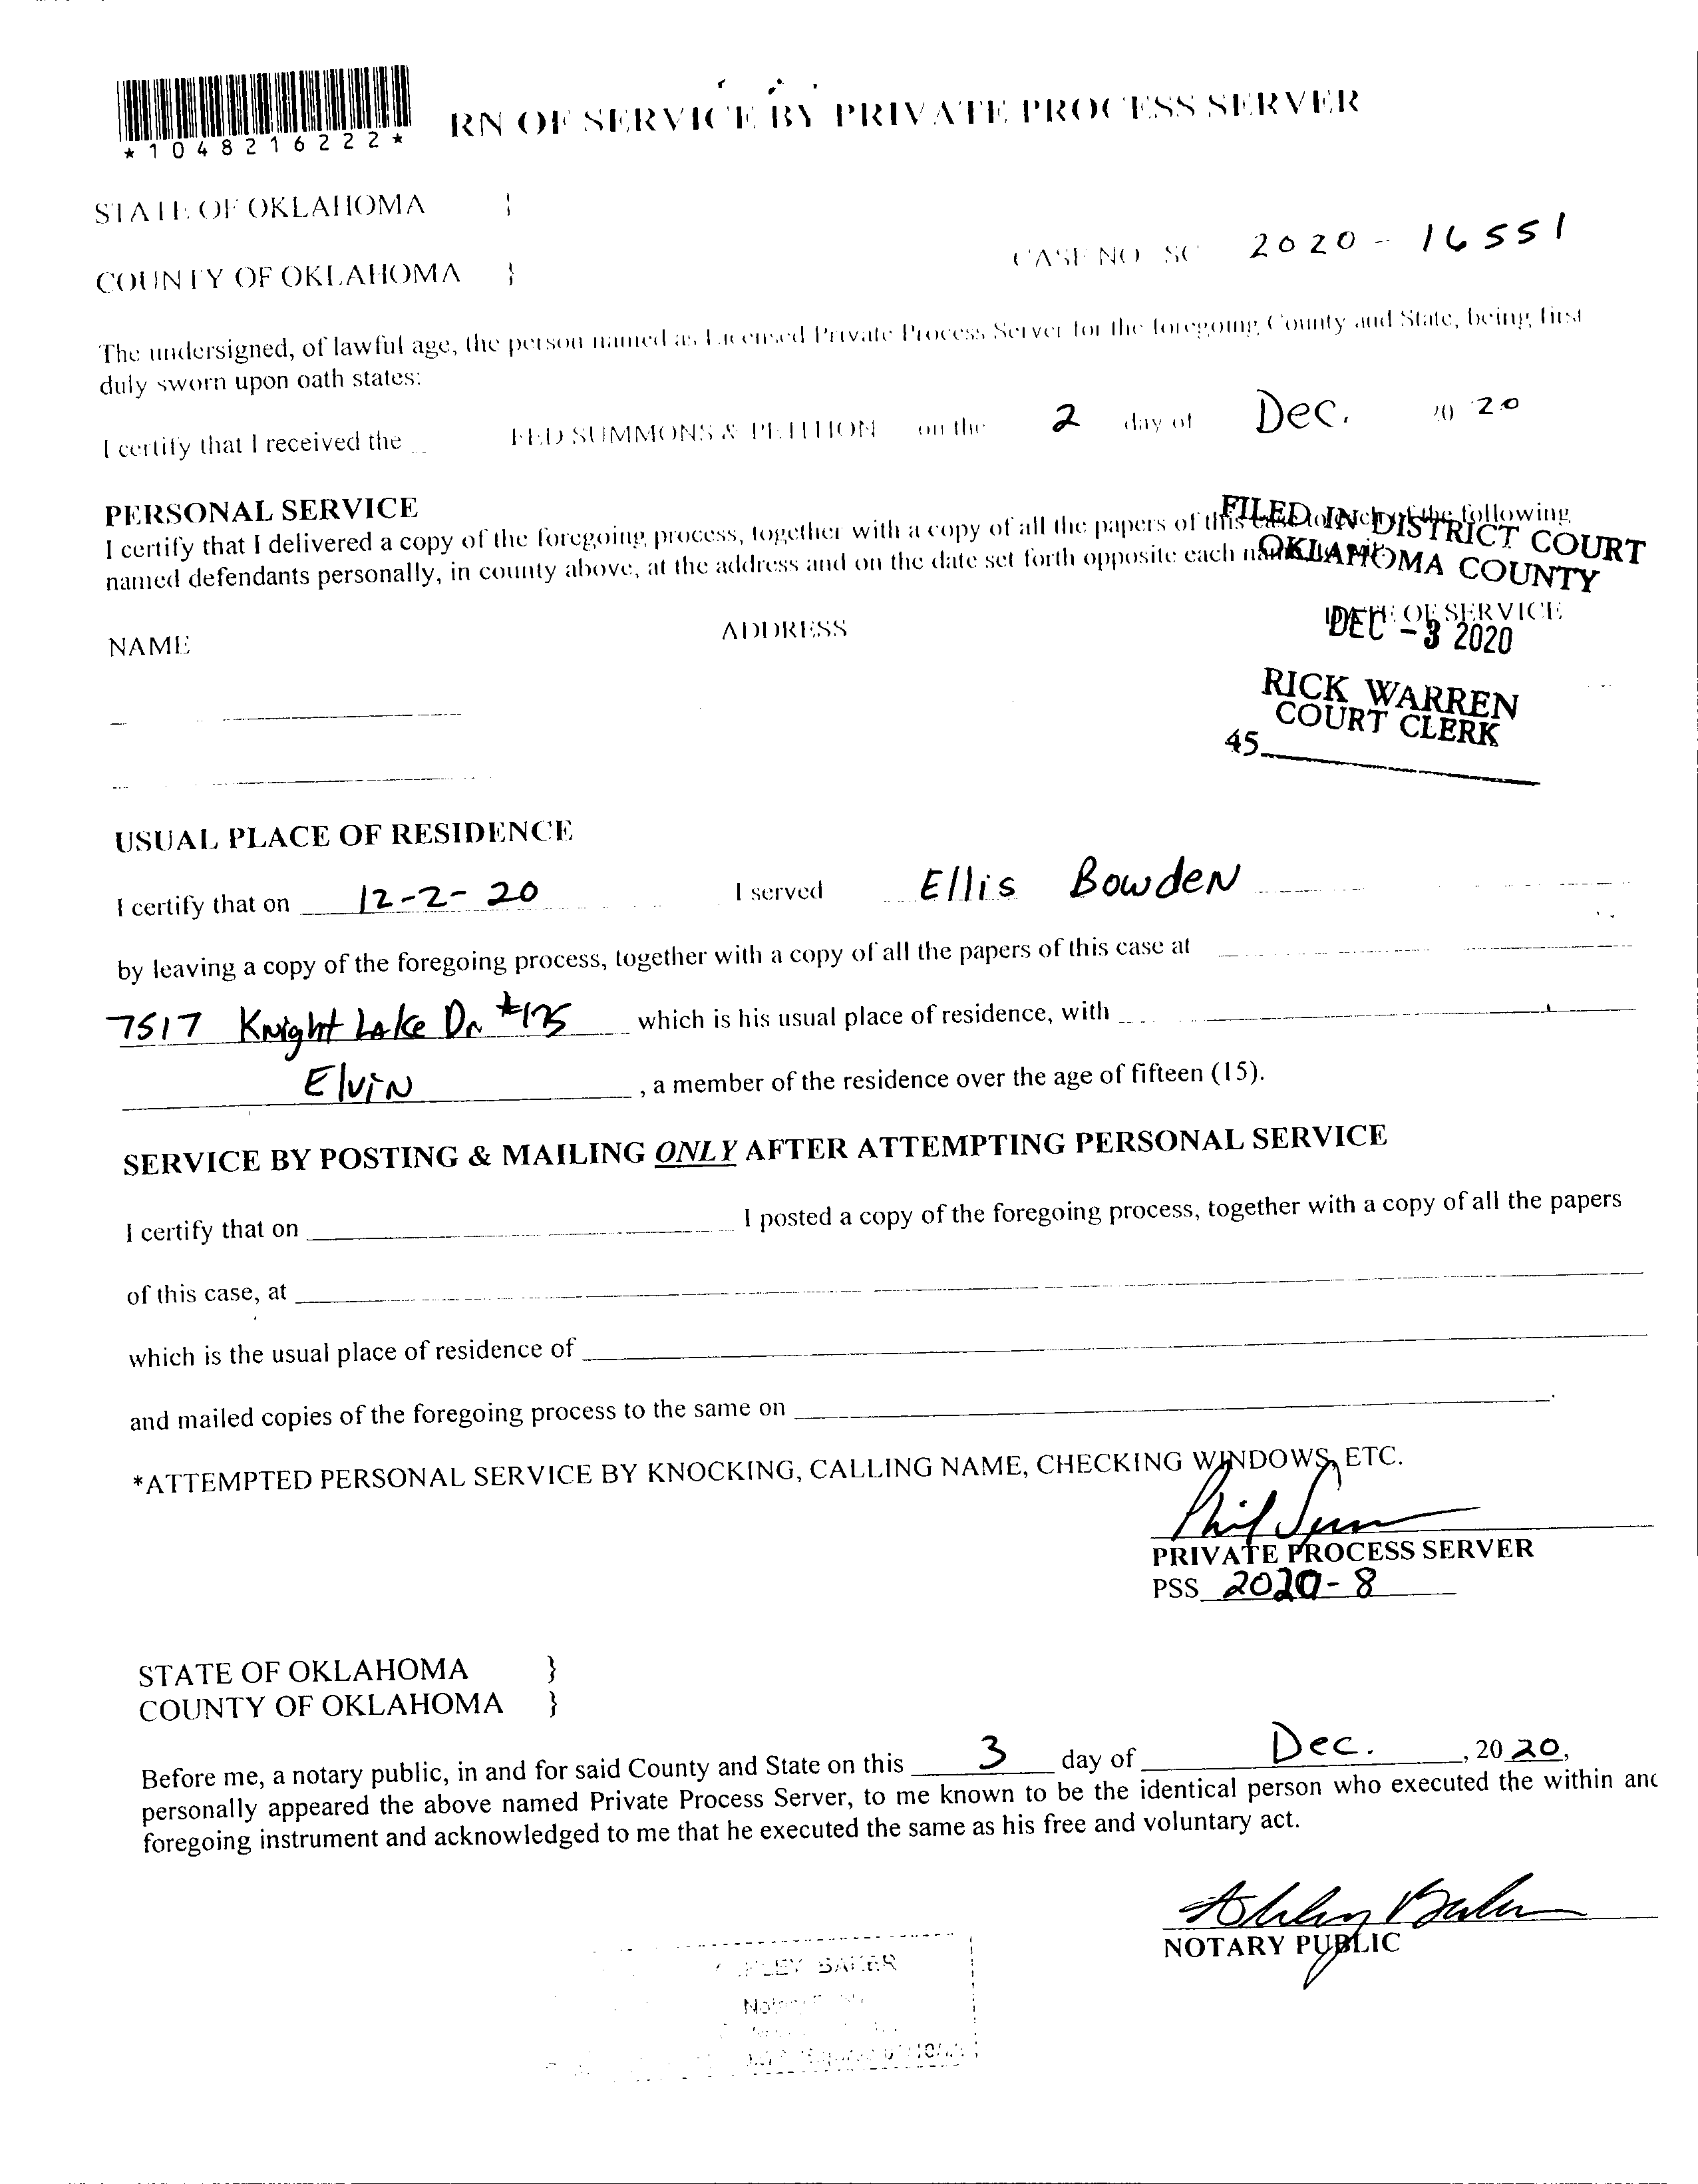 *1048216222*
RN OF SERVICE BY PRIVATE PROCESS SERVER
STATE OF OKLAHOMA }
CASE NO SC 2020 - 16551
COUNTY OF OKLAHOMA }
The undersigned, of lawful age, the person named as Licensed Private Process Server for the foregoing County and State, being first
duly sworn upon oath states:
I certify that I received the FED SUMMONS & PETITION on the 2 day of Dec. 20 20
PERSONAL SERVICE
I certify that I delivered a copy of the foregoing process, together with a copy of all the papers of this case to each of the following
named defendants personally, in county above, at the address and on the date set forth opposite each name
FILED IN DISTRICT COURT
OKLAHOMA COUNTY
NAME ADDRESS DATE OF SERVICE
DEC - 3 2020
RICK WARREN
COURT CLERK
45
USUAL PLACE OF RESIDENCE
I certify that on 12-2-20 I served Ellis Bowden
by leaving a copy of the foregoing process, together with a copy of all the papers of this case at
7517 Knight Lake Dr #175 which is his usual place of residence, with
Elvin , a member of the residence over the age of fifteen (15).
SERVICE BY POSTING & MAILING ONLY AFTER ATTEMPTING PERSONAL SERVICE
I certify that on I posted a copy of the foregoing process, together with a copy of all the papers
of this case, at
which is the usual place of residence of
and mailed copies of the foregoing process to the same on .
*ATTEMPTED PERSONAL SERVICE BY KNOCKING, CALLING NAME, CHECKING WINDOWS, ETC.
PRIVATE PROCESS SERVER
PSS 2020-8
STATE OF OKLAHOMA }
COUNTY OF OKLAHOMA }
Before me, a notary public, in and for said County and State on this 3 day of Dec. , 20 20,
personally appeared the above named Private Process Server, to me known to be the identical person who executed the within and
foregoing instrument and acknowledged to me that he executed the same as his free and voluntary act.
Ashley Baker
NOTARY PUBLIC
BAKER